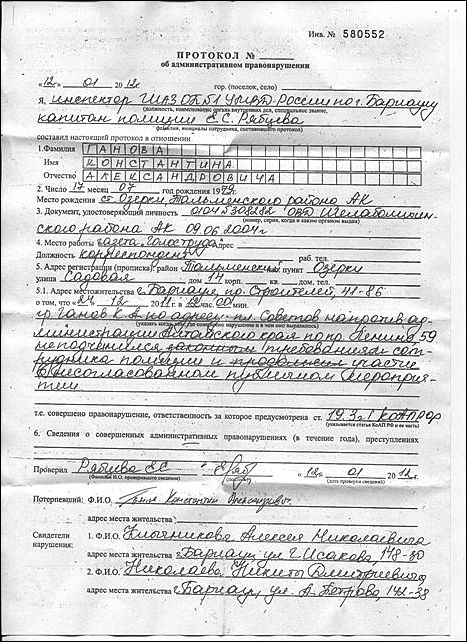 Инв. № 580552
ПРОТОКОЛ №
об административном правонарушении
«12» 01 2012г. гор. (поселок, село)
Я, инспектор ИАЗ ОП 1 УМВД России по г. Барнаулу
(должность, наименование органа внутренних дел, специальное звание,
капитан полиции Е.С. Рябцева
фамилия, инициалы сотрудника, составившего протокол)
составил настоящий протокол в отношении
1. Фамилия ГАНОВА
Имя КОНСТАНТИНА
Отчество АЛЕКСАНДРОВИЧА
2. Число 17 месяц 07 год рождения 1979
Место рождения ст. Озерки, Тальменского района АК
3. Документ, удостоверяющий личность 0104 308282 ОВД Шелаболихин-
(номер, серия, когда и каким органом выдан)
ского района АК 09.06.2004г
4. Место работы газета "Голос труда" Адрес
Должность корреспондент раб. тел.
5. Адрес регистрации (прописка) район Тальменский пункт Озерки
улица Садовая дом 14 корп. кв. дом. тел.
5.1. Адрес местожительства г. Барнаул, пр. Строителей, 41-86
о том, что «27» 12 2011 г. 12 час. 00 мин.
гр. Ганов К.А. по адресу: пл. Советов напротив ад-
(указать когда, где совершено нарушение и в чем оно выразилось)
министрации Алтайского края по пр. Ленина, 59
неподчинился законным требованиям сот-
рудника полиции и продолжил участие
в несогласованном публичном мероприя-
тии
т.е. совершено правонарушение, ответственность за которое предусмотрена ст. 19.3 ч.1 КоАП РФ
(указывается статья КоАП РФ и ее часть)
6. Сведения о совершенных административных правонарушениях (в течение года), преступлениях
Проверил Рябцева ЕС «12» 01 2012 г.
(Фамилия И.О. проверившего сведения) (подпись) (дата проверки сведений)
Потерпевший: Ф.И.О. Константин Александрович
адрес места жительства
Свидетели 1. Ф.И.О. Ключникова Алексея Николаевича
нарушения:
адрес места жительства г. Барнаул, ул. Г. Исакова, 148-30
2. Ф.И.О. Николаева Никиты Дмитриевича
адрес места жительства г. Барнаул, ул. А. Петрова 142-38